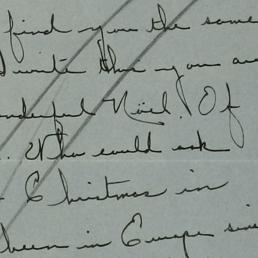 find you the same
write this you are
nderful Noël! Of
. Who could ask
Christmas in
been in Europe sin